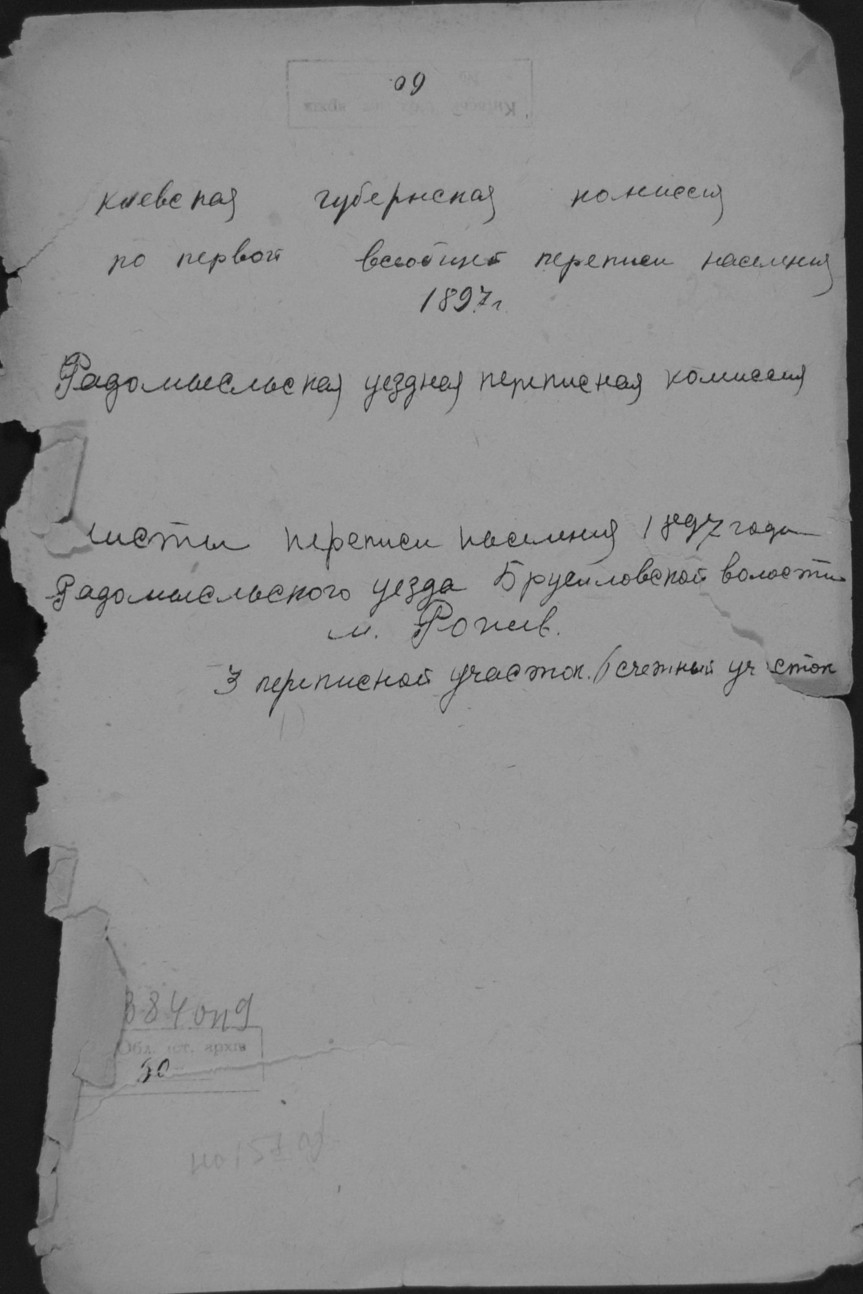 Киевская губернская комиссия
по первой всеобщей переписи населения
1897г
Радомысльская уездная переписная комиссия
листы переписи населения 1897 года
Радомысльского уезда Брусиловской волости
м. Рожев.
3 переписной участок. счетный участок
84 оп 9
Обл. іст. архів
30